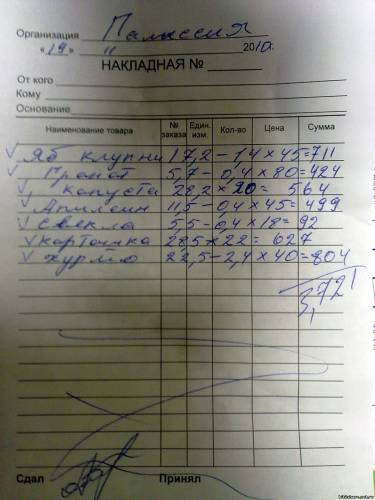 Организация Палиссия
« 19 » " 2010г.
НАКЛАДНАЯ №
От кого
Кому
Основание
Наименование товара № заказа Един. изм. Кол-во Цена Сумма
Яб крупни 17,2 - 1,4 × 45 = 711
Гранат 5,7 - 0,4 × 80 = 424
капуста 28,2 × 20 = 564
Апилсин 11,5 - 0,4 × 45 = 499
Свекла 5,5 - 0,4 × 18 = 92
картошка 28,5 × 22 = 627
хурмо 22,5 - 2,4 × 40 = 804
3,721
Сдал Принял